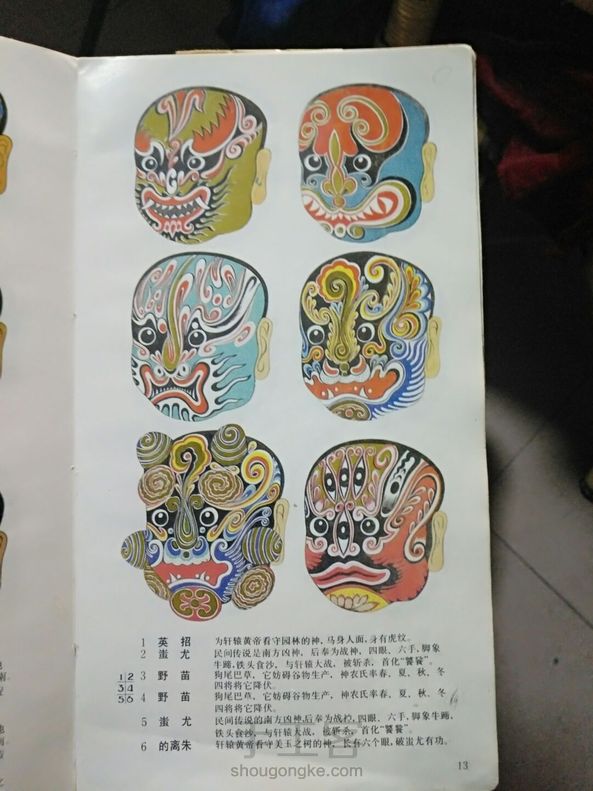 1 英招 为轩辕黄帝看守园林的神,马身人面,身有虎纹。
2 蚩尤 民间传说是南方凶神,后奉为战神,四眼、六手,脚象
牛蹄,铁头食沙,与轩辕大战,被斩杀,首化“饕餮”。
3 野苗 狗尾巴草,它妨碍谷物生产,神农氏率春、夏、秋、冬
四将将它降伏。
4 野苗 狗尾巴草,它妨碍谷物生产,神农氏率春、夏、秋、冬
四将将它降伏。
5 蚩尤 民间传说的南方凶神,后奉为战神,四眼、六手,脚象牛蹄,
铁头食沙,与轩辕大战,被斩杀。首化“饕餮”
6 的离朱 轩辕黄帝看守美玉之树的神,长有六个眼,破蚩尤有功。
1 2
3 4
5 6
13
手工客
shougongke.com